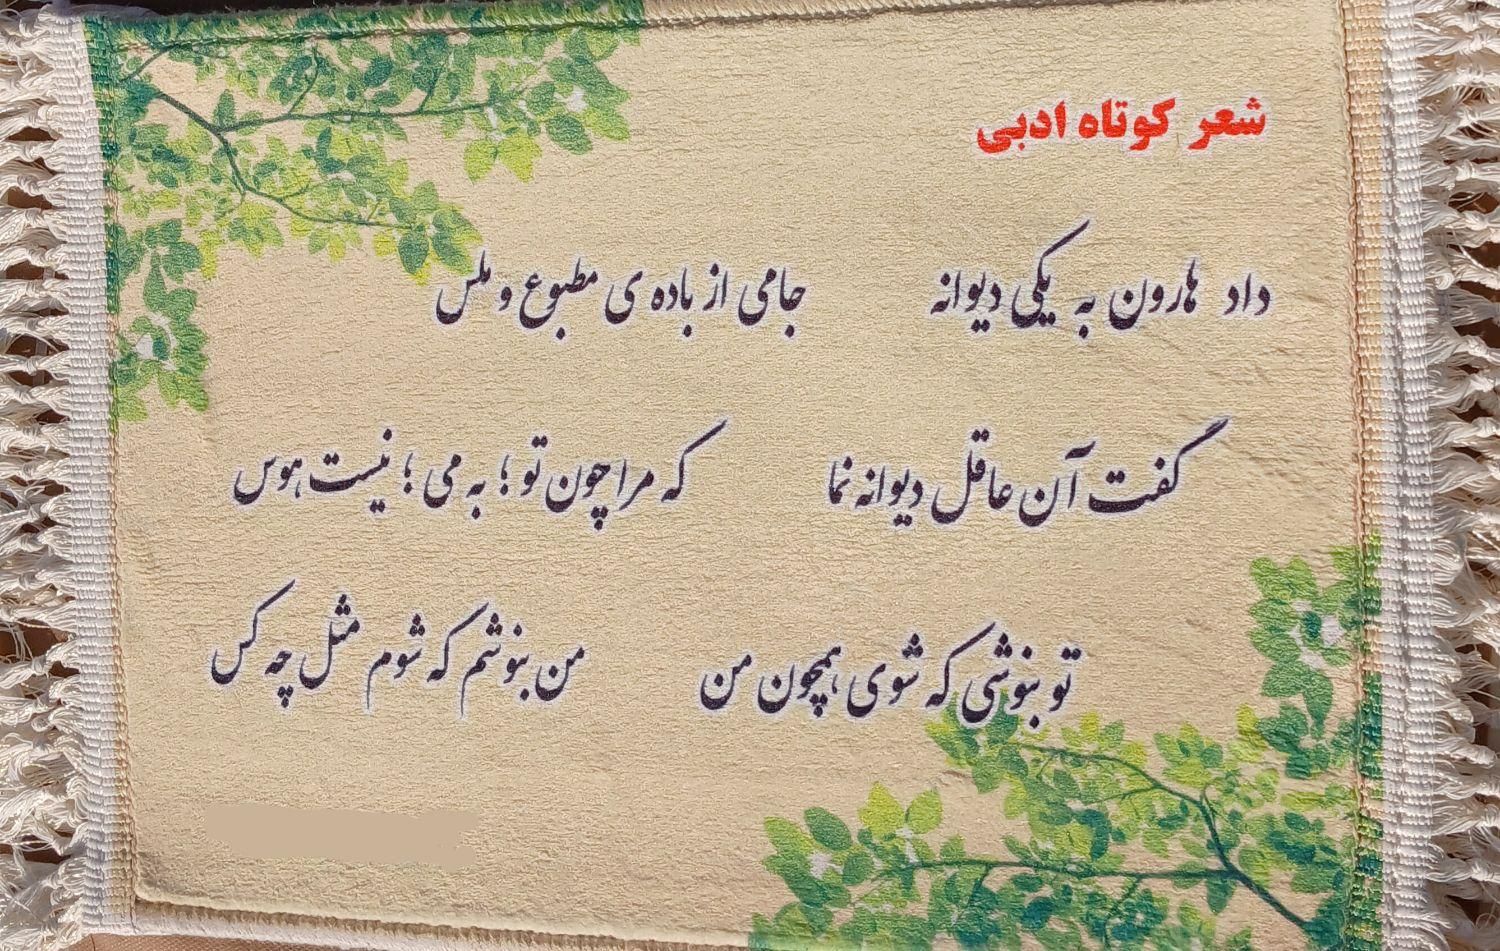 شعر کوتاه ادبی
داد هارون به یکی دیوانه جامی از باده ی مطبوع و ملس
گفت آن عاقل دیوانه نما که مرا چون تو ؛ به می ؛ نیست هوس
تو بنوشی که شوی همچون من من بنوشم که شوم مثل چه کس